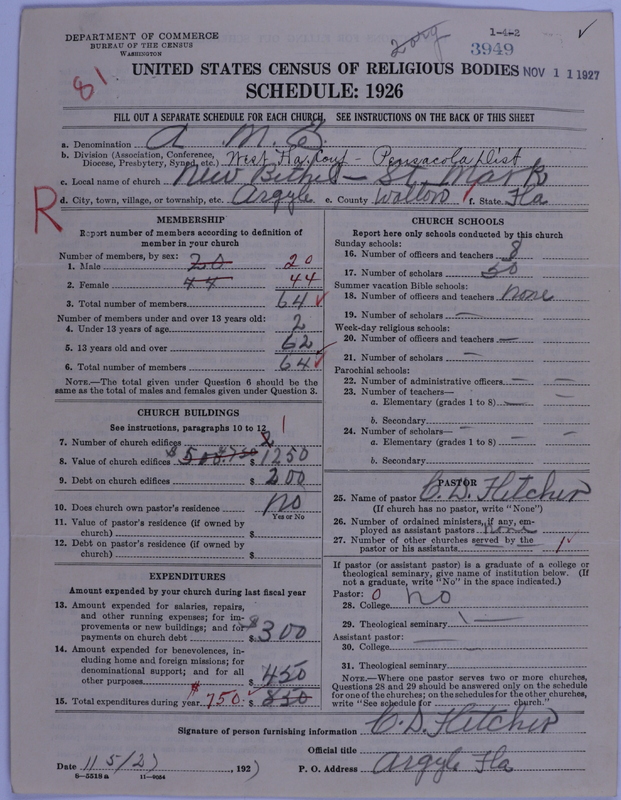 DEPARTMENT OF COMMERCE
BUREAU OF THE CENSUS
WASHINGTON
1-4-2
3949
81
UNITED STATES CENSUS OF RELIGIOUS BODIES NOV 11 1927
SCHEDULE: 1926
FILL OUT A SEPARATE SCHEDULE FOR EACH CHURCH, SEE INSTRUCTIONS ON THE BACK OF THIS SHEET
a. Denomination A M E
b. Division (Association, Conference, Diocese, Presbytery, Synod, etc.) West Fla Conf - Pensacola Dist
c. Local name of church New Bethel - St. Mark
R
d. City, town, village, or township, etc. Argyle e. County Walton f. State Fla
MEMBERSHIP
Report number of members according to definition of member in your church
Number of members, by sex:
1. Male 20 20
2. Female 44 44
3. Total number of members 64
Number of members under and over 13 years old:
4. Under 13 years of age 2
5. 13 years old and over 62
6. Total number of members 64
NOTE.—The total given under Question 6 should be the same as the total of males and females given under Question 3.
CHURCH BUILDINGS
See instructions, paragraphs 10 to 12
7. Number of church edifices 2 1
8. Value of church edifices $500 + 750 $ 1250
9. Debt on church edifices $ 200
10. Does church own pastor's residence No
Yes or No
11. Value of pastor's residence (if owned by church) $
12. Debt on pastor's residence (if owned by church) $
EXPENDITURES
Amount expended by your church during last fiscal year
13. Amount expended for salaries, repairs, and other running expenses; for improvements or new buildings; and for payments on church debt $ 300
14. Amount expended for benevolences, including home and foreign missions; for denominational support; and for all other purposes $ 450
15. Total expenditures during year 750 $ 850
CHURCH SCHOOLS
Report here only schools conducted by this church
Sunday schools:
16. Number of officers and teachers 8
17. Number of scholars 50
Summer vacation Bible schools:
18. Number of officers and teachers none
19. Number of scholars —
Week-day religious schools:
20. Number of officers and teachers —
21. Number of scholars —
Parochial schools:
22. Number of administrative officers —
23. Number of teachers—
a. Elementary (grades 1 to 8) —
b. Secondary
24. Number of scholars—
a. Elementary (grades 1 to 8) —
b. Secondary
PASTOR
25. Name of pastor C. D. Fletcher
(If church has no pastor, write "None")
26. Number of ordained ministers, if any, employed as assistant pastors none
27. Number of other churches served by the pastor or his assistants 1
If pastor (or assistant pastor) is a graduate of a college or theological seminary, give name of institution below. (If not a graduate, write "No" in the space indicated.)
Pastor: 0
28. College No
29. Theological seminary
Assistant pastor:
30. College
31. Theological seminary
NOTE.—Where one pastor serves two or more churches, Questions 28 and 29 should be answered only on the schedule for one of the churches; on the schedules for the other churches, write "See schedule for church."
Signature of person furnishing information C. D. Fletcher
Official title
Date 11 5/27, 1927 P. O. Address Argyle Fla
8-5518a 11-9084